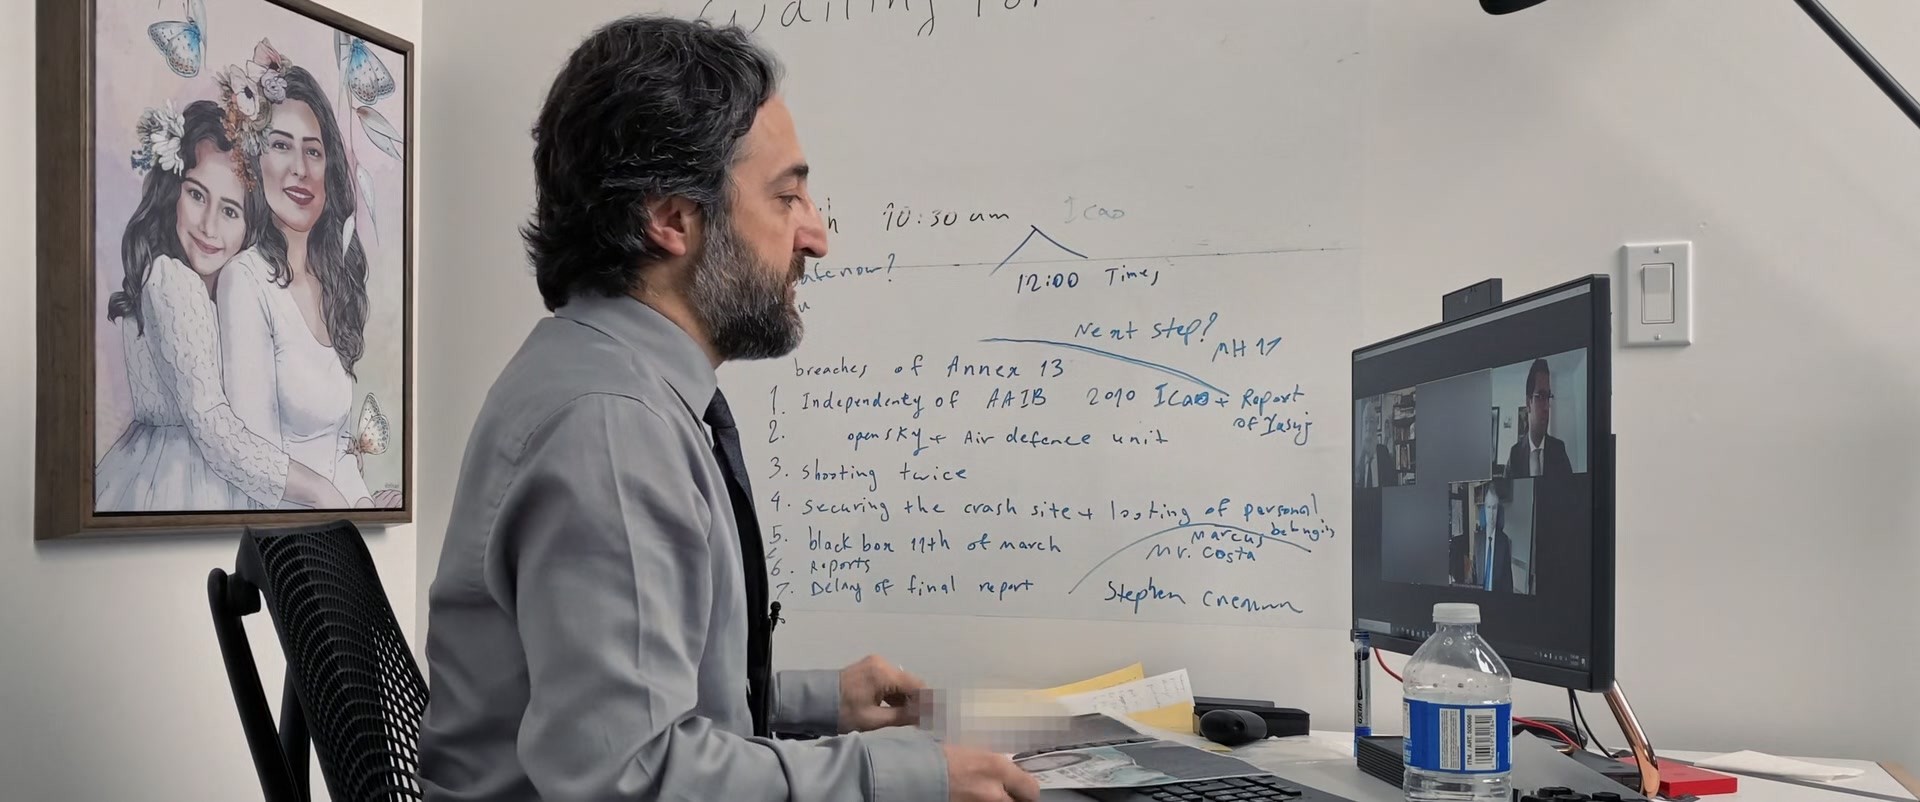 Waiting for
10:30 am Icao
now?
12:00 Times
Next step?
MH 17
breaches of Annex 13
1. Independenty of AAIB 2010 Icao + Report
of Yasuj
2. opensky + Air defence unit
3. shooting twice
4. securing the crash site + looting of personal
belongings
5. black box 11th of march
Marcus
Mr. Costa
6. Reports
7. Delay of final report
Stephen